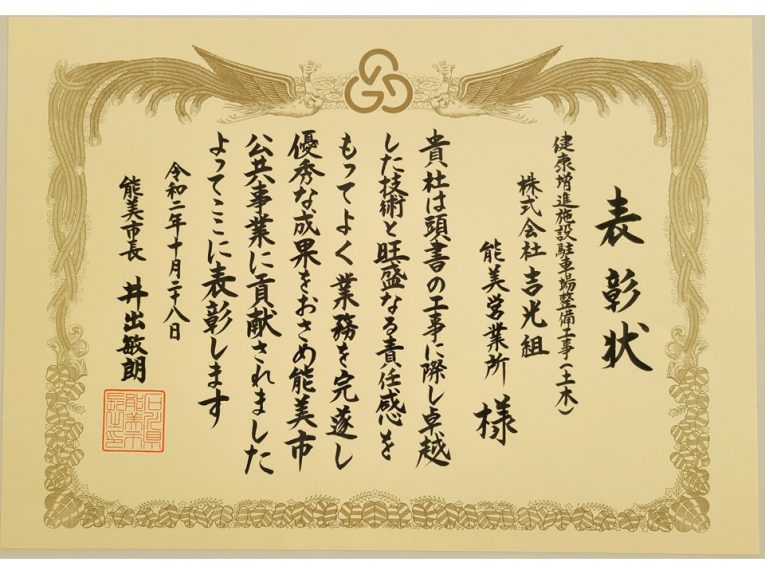 表彰状
健康増進施設駐車場整備工事(土木)
株式会社吉光組
能美営業所 様
貴社は頭書の工事に際し卓越
した技術と旺盛なる責任感を
もってよく業務を完遂し
優秀な成果をおさめ能美市
公共事業に貢献されました
よってここに表彰します
令和二年十月二十八日
能美市長 井出敏朗
石川県
能美市
長之印